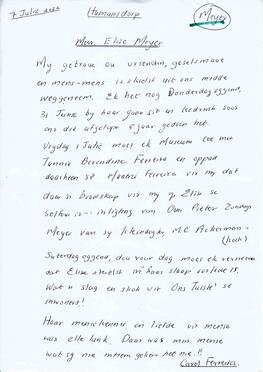 7 Julie
Humansdorp
Meyer
Mev. Elise Meyer
My getroue ou vriendin, geselsmaat
en mens-mens is skielik uit ons midde
weggeneem. Ek het nog Donderdagoggend,
by haar gaan sit en teedrink soos
ons die afgelope 5 jaar gedoen het.
Vrydag 1 Julie moes ek Museum toe met
Tannie Berendine Ferreira en oppad
daarheen sê Maatri Ferreira vir my dat
daar 'n boodskap vir my op Elise se
selfoon is - inligting van Oom Pieter Zondagh
Meyer van sy kleindogter, M.C. Ackerman.
Saterdagoggend, dou voor dag moes ek verneem
dat Elise skielik in haar slaap oorlede is.
Wat 'n slag en skok vir Ons Tuiste se
inwoners!
Haar mensekennis en liefde vir mense
was elke lank. Daar was min mense
wat sy nie mee gehelp het nie.!!
Carol Ferreira.